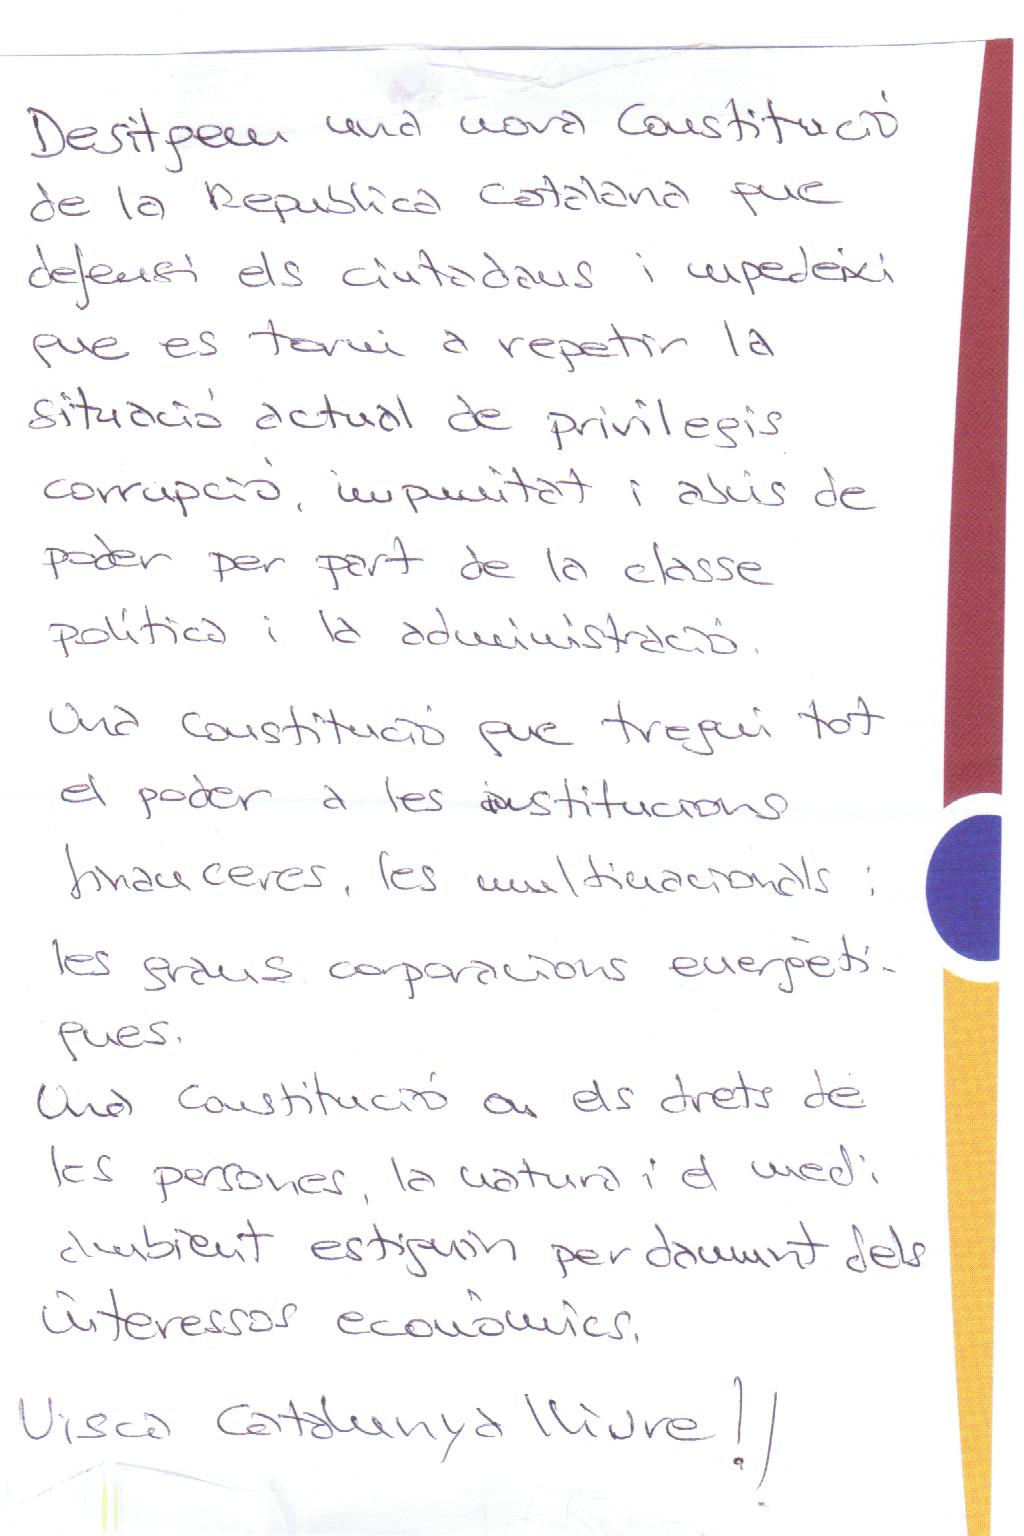 Desitgem una nova Constitució
de la Republica Catalana que
defensi els ciutadans i impedeixi
que es torni a repetir la
situació actual de privilegis
corrupció, impunitat i abús de
poder per part de la classe
política i la administració.
Una Constitució que tregui tot
el poder a les institucions
financeres, les multinacionals i
les grans corporacions energèti-
ques.
Una Constitució on els drets de
les persones, la natura i el medi
ambient estiguin per damunt dels
interessos econòmics.
Visca Catalunya lliure!!